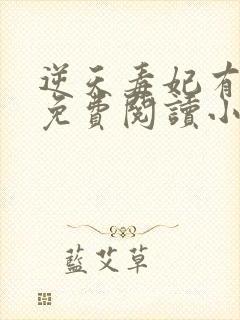 逆天毒妃有
免費閱讀小
藍艾草